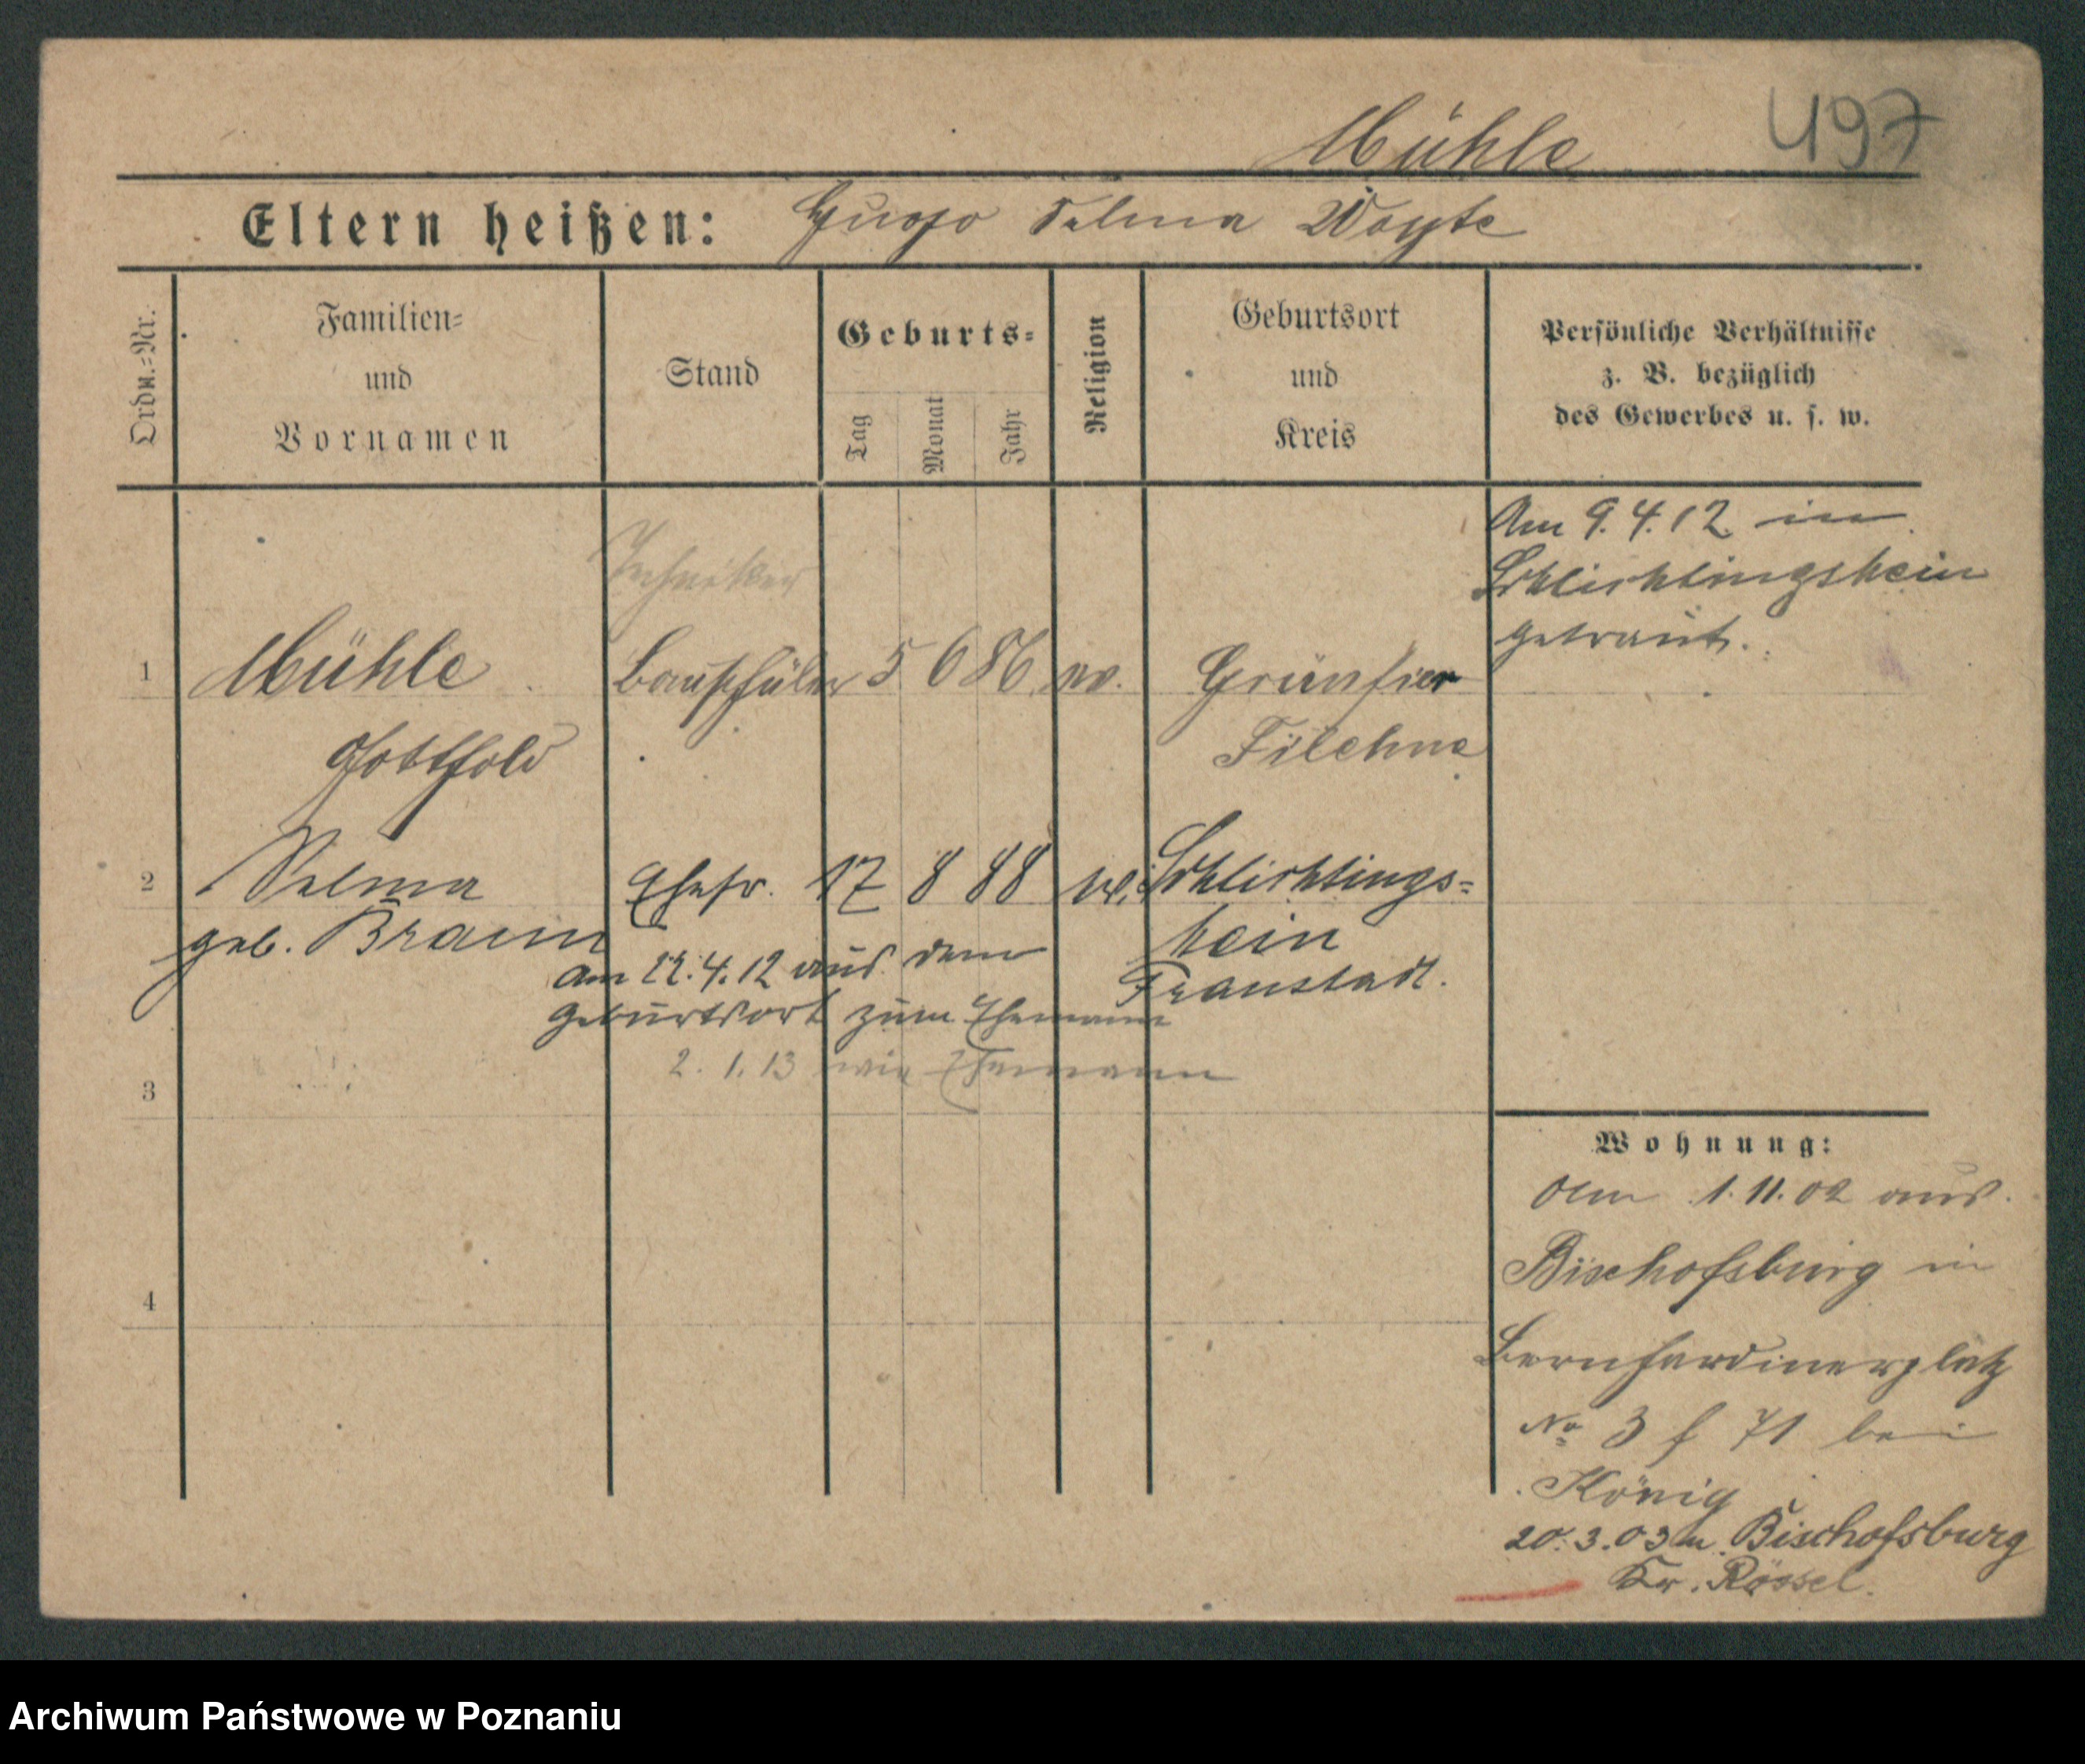 Mühle 497
Eltern heißen: Hugo Selma Woyte
Ordn.-Nr.
Familien-
und
Vornamen
Stand
Geburts-
Tag
Monat
Jahr
Religion
Geburtsort
und
Kreis
Persönliche Verhältnisse
z. B. bezüglich
des Gewerbes u. s. w.
Am 9.4.12 in
Schlichtingsheim
getraut.
Techniker
1 Mühle Bauschüler 5 6 86 ev. Grünfier
Gotthold Filehne
2 Selma Ehefr. 17 8 88 ev. Schlichtings-
geb. Braun heim
am 22.4.12 aus dem Fraustadt.
Geburtsort zum Ehemann
2.1.13 wie Ehemann
3
4
Wohnung:
Am 1.11.02 aus
Bischofsburg in
Bernhardinerplatz
No 3 f 71 bei
König
20.3.03 n. Bischofsburg
Kr. Rössel.
Archiwum Państwowe w Poznaniu